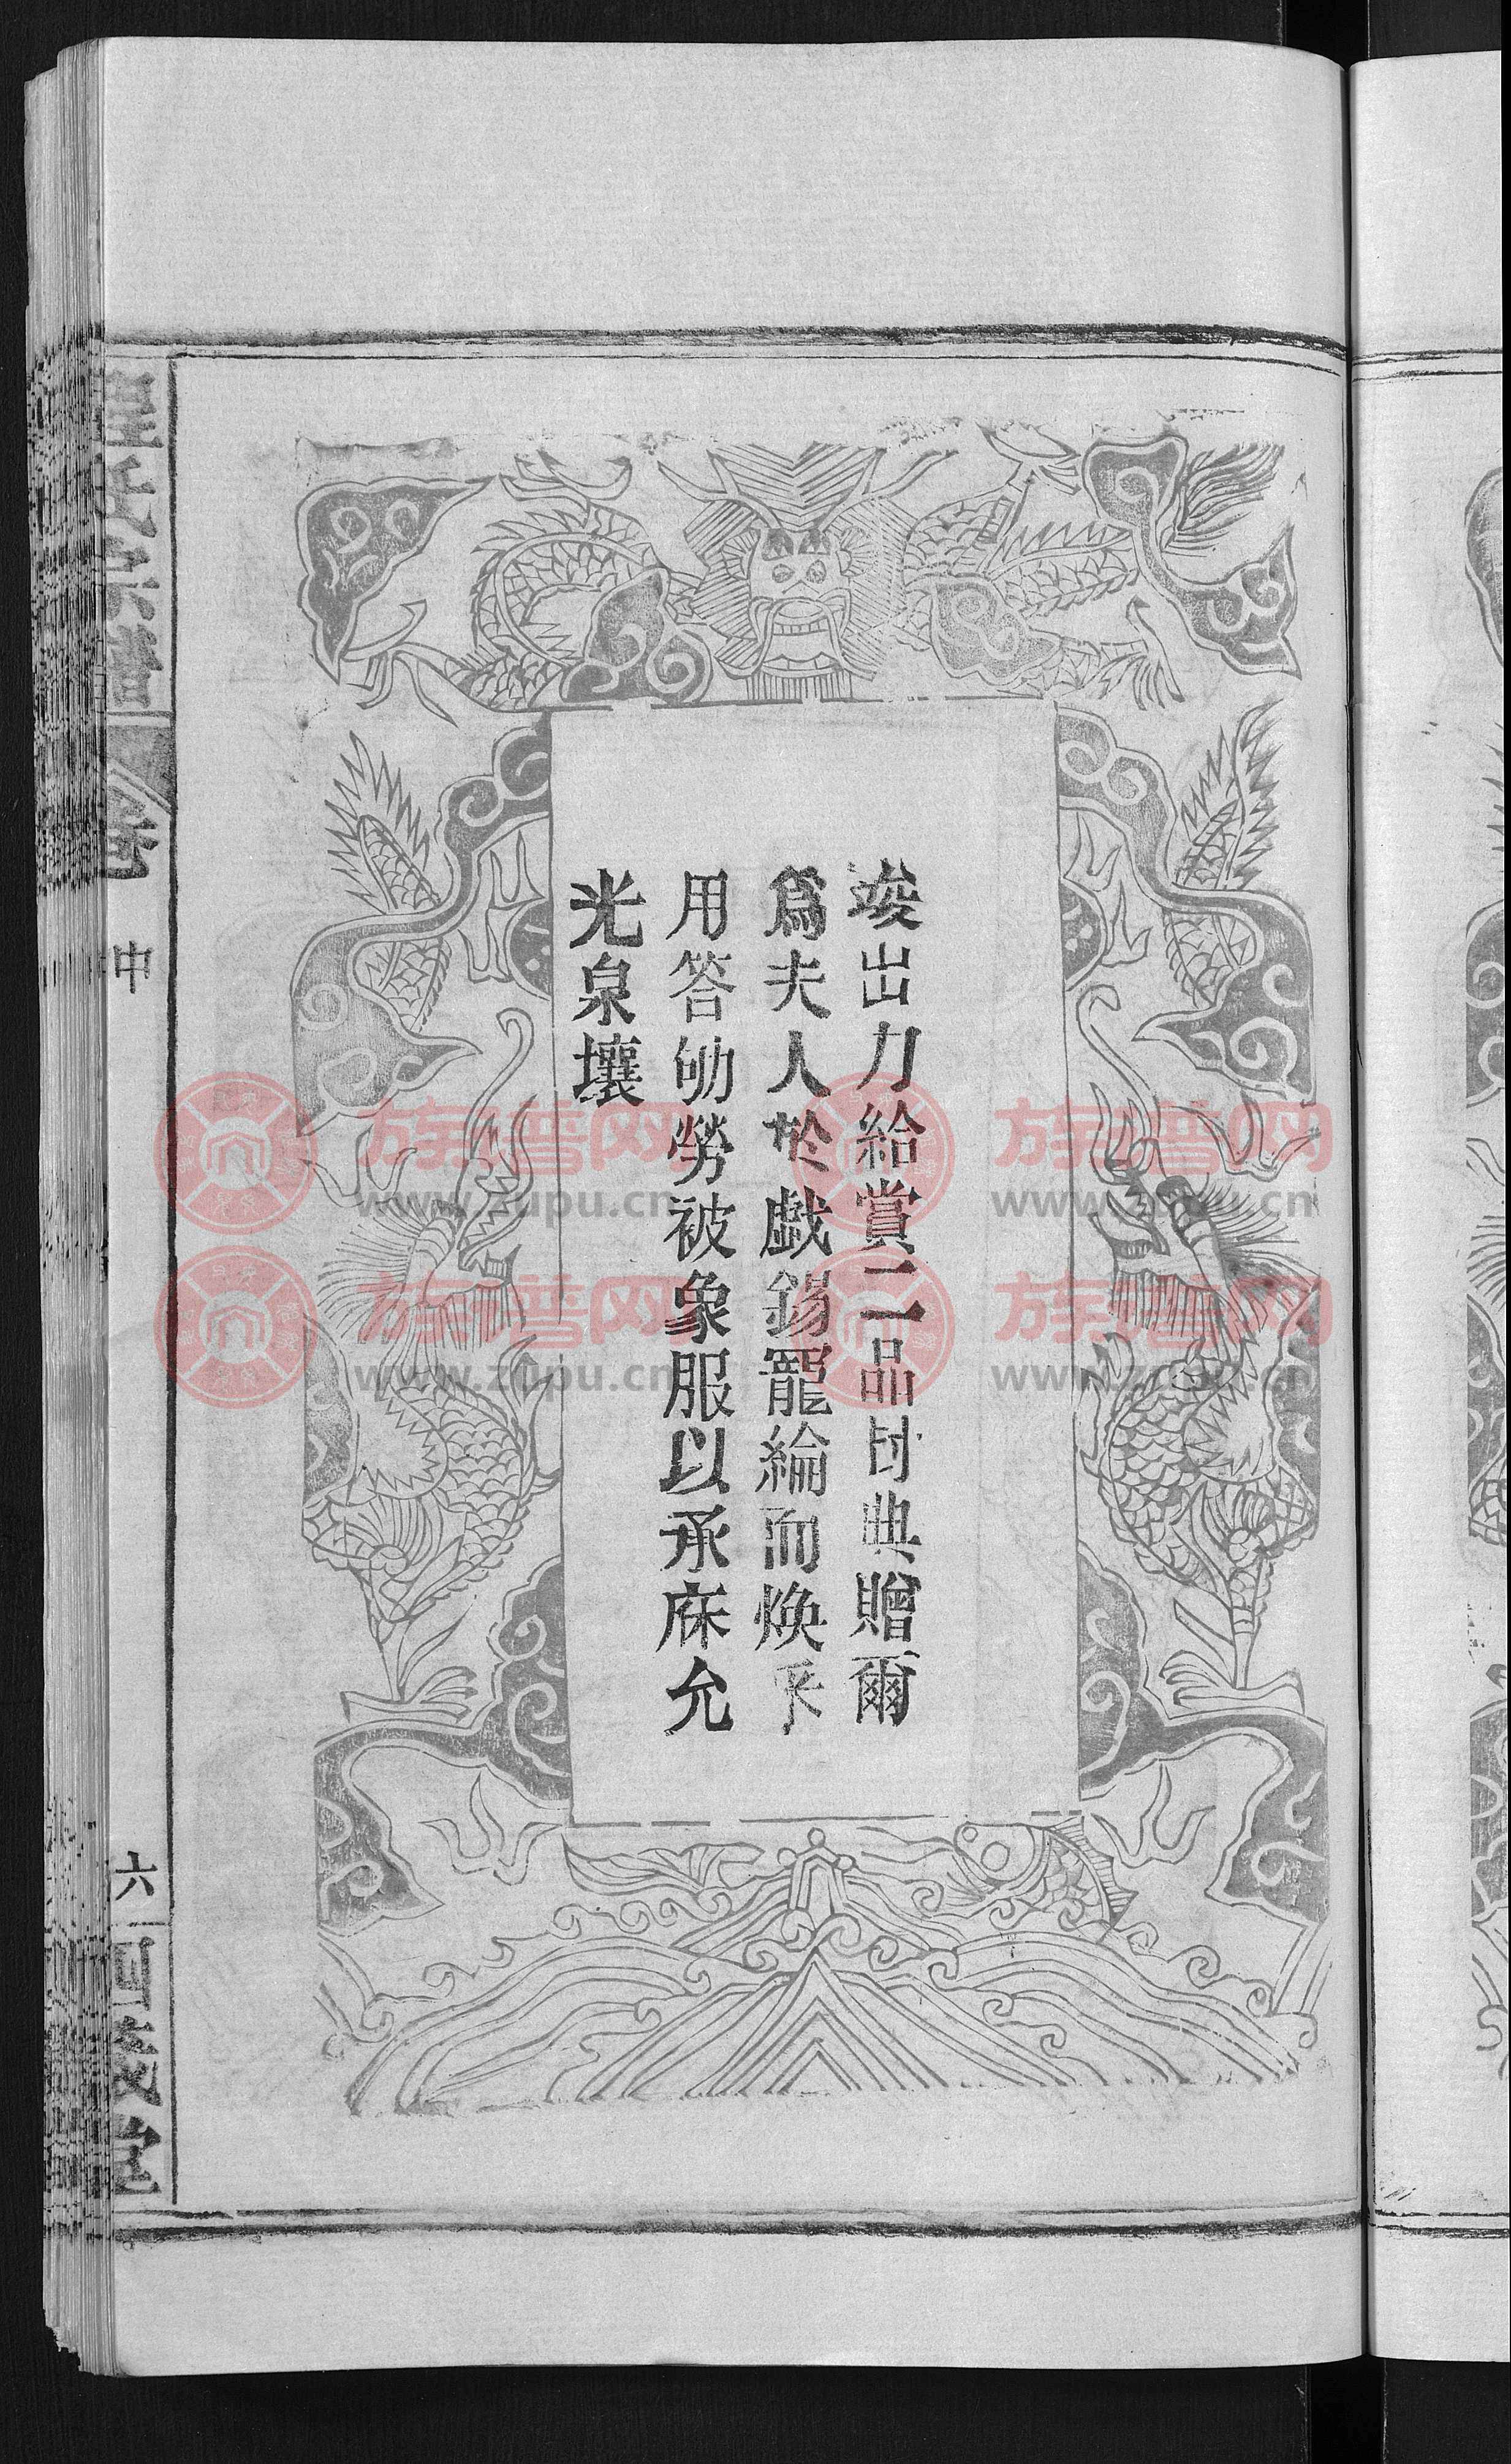 竣出力給賞二品封典贈爾
爲夫人於戲錫罷綸而煥采
用答劬勞被象服以承庥允
光泉壤
中
六
族譜网
www.zupu.cn
族譜网
www.zupu.cn
族譜网
www.zupu.cn
族譜网
www.zupu.cn